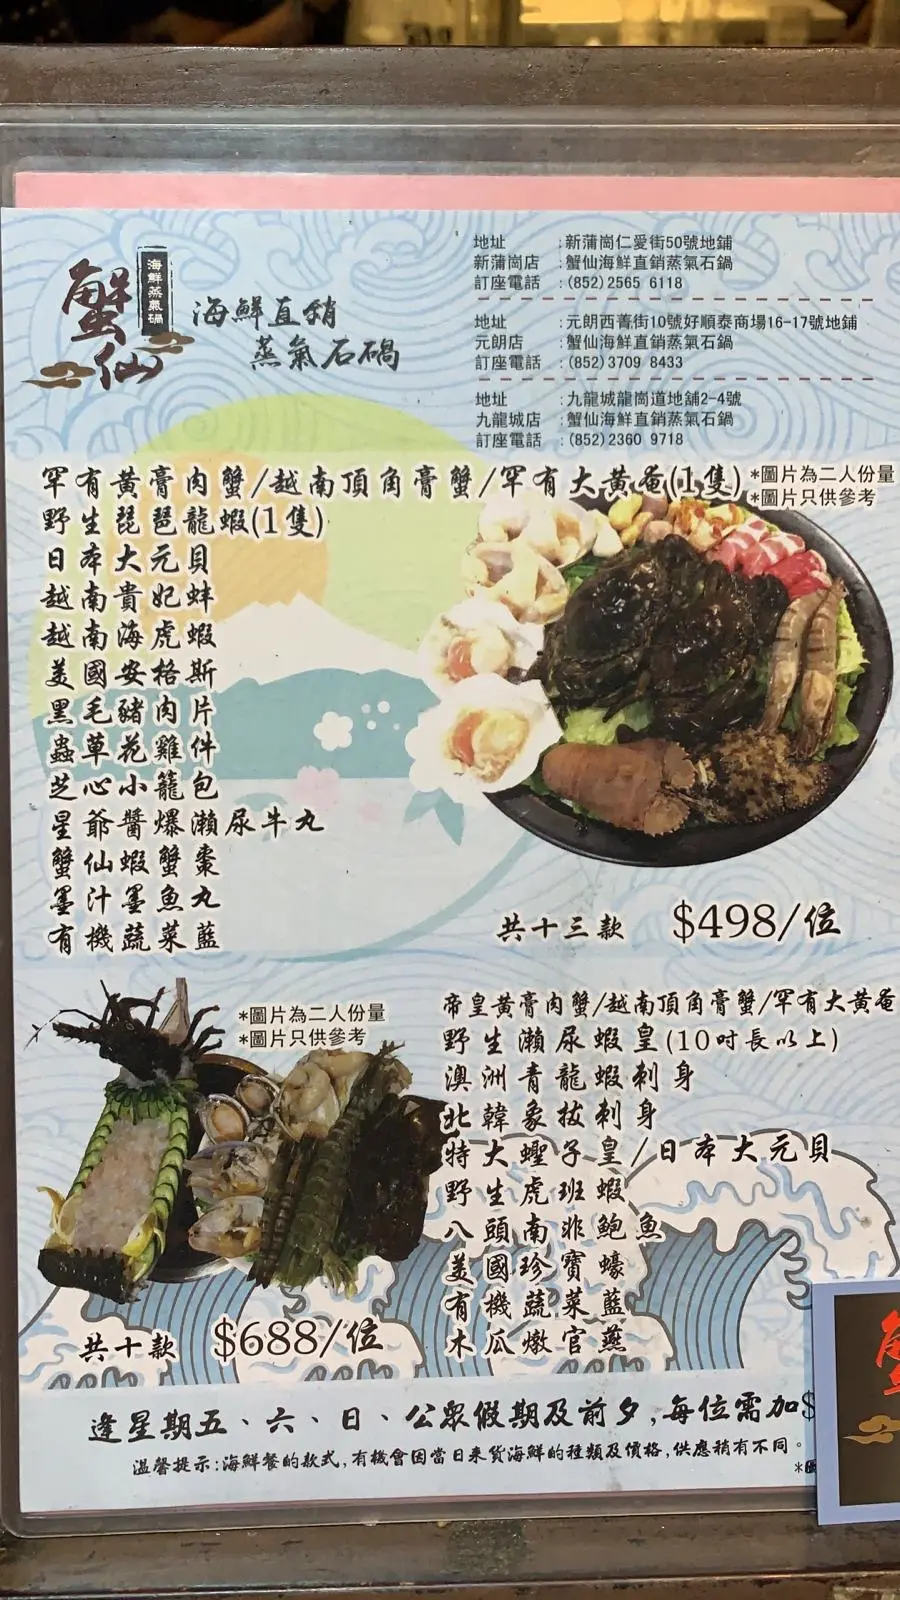 蟹仙
海鮮蒸氣鍋
海鮮直銷
蒸氣石鍋
地址 :新蒲崗仁愛街50號地鋪
新蒲崗店 :蟹仙海鮮直銷蒸氣石鍋
訂座電話 :(852)2565 6118
地址 :元朗西菁街10號好順泰商場16-17號地鋪
元朗店 :蟹仙海鮮直銷蒸氣石鍋
訂座電話 :(852)3709 8433
地址 :九龍城龍崗道地舖2-4號
九龍城店 :蟹仙海鮮直銷蒸氣石鍋
訂座電話 :(852)2360 9718
罕有黃膏肉蟹/越南頂角膏蟹/罕有大黃奄(1隻)
*圖片為二人份量
*圖片只供參考
野生琵琶龍蝦(1隻)
日本大元貝
越南貴妃蚌
越南海虎蝦
美國安格斯
黑毛豬肉片
蟲草花雞件
芝心小籠包
星爺醬爆瀨尿牛丸
蟹仙蝦蟹棗
墨汁墨魚丸
有機蔬菜籃
共十三款 $498/位
*圖片為二人份量
*圖片只供參考
帝皇黃膏肉蟹/越南頂角膏蟹/罕有大黃奄
野生瀨尿蝦皇(10吋長以上)
澳洲青龍蝦刺身
北韓象拔刺身
特大蟶子皇/日本大元貝
野生虎班蝦
八頭南非鮑魚
美國珍寶蠔
有機蔬菜籃
木瓜燉官燕
共十款 $688/位
逢星期五、六、日、公眾假期及前夕,每位需加$
溫馨提示:海鮮餐的款式,有機會因當日來货海鮮的種類及價格,供應稍有不同。